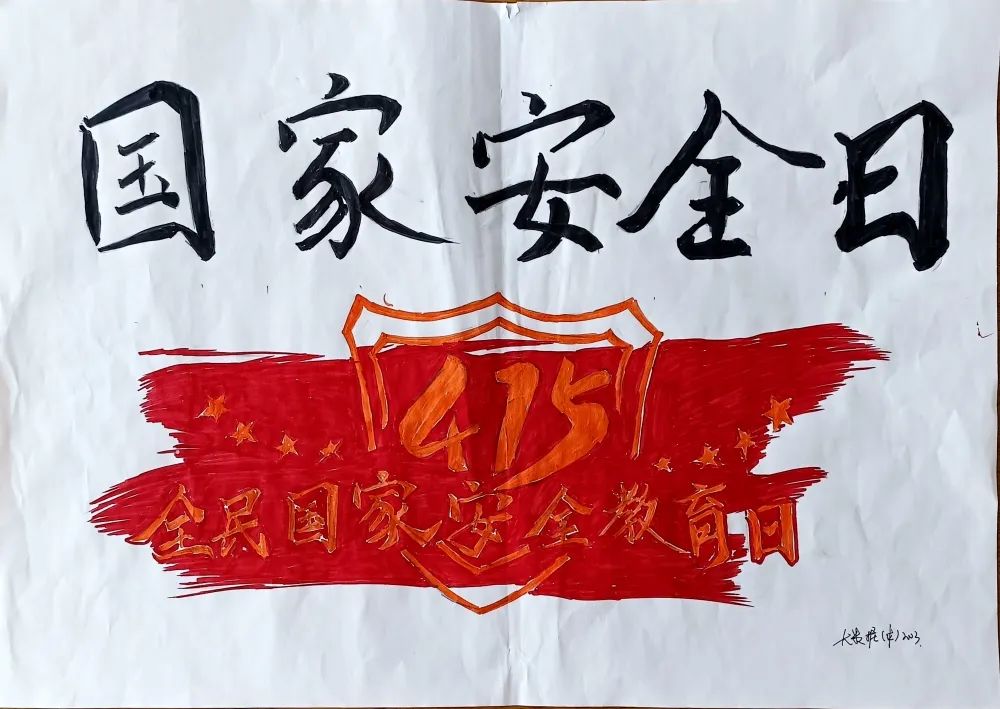 国家安全日
415
全民国家安全教育日
大数据(中)203